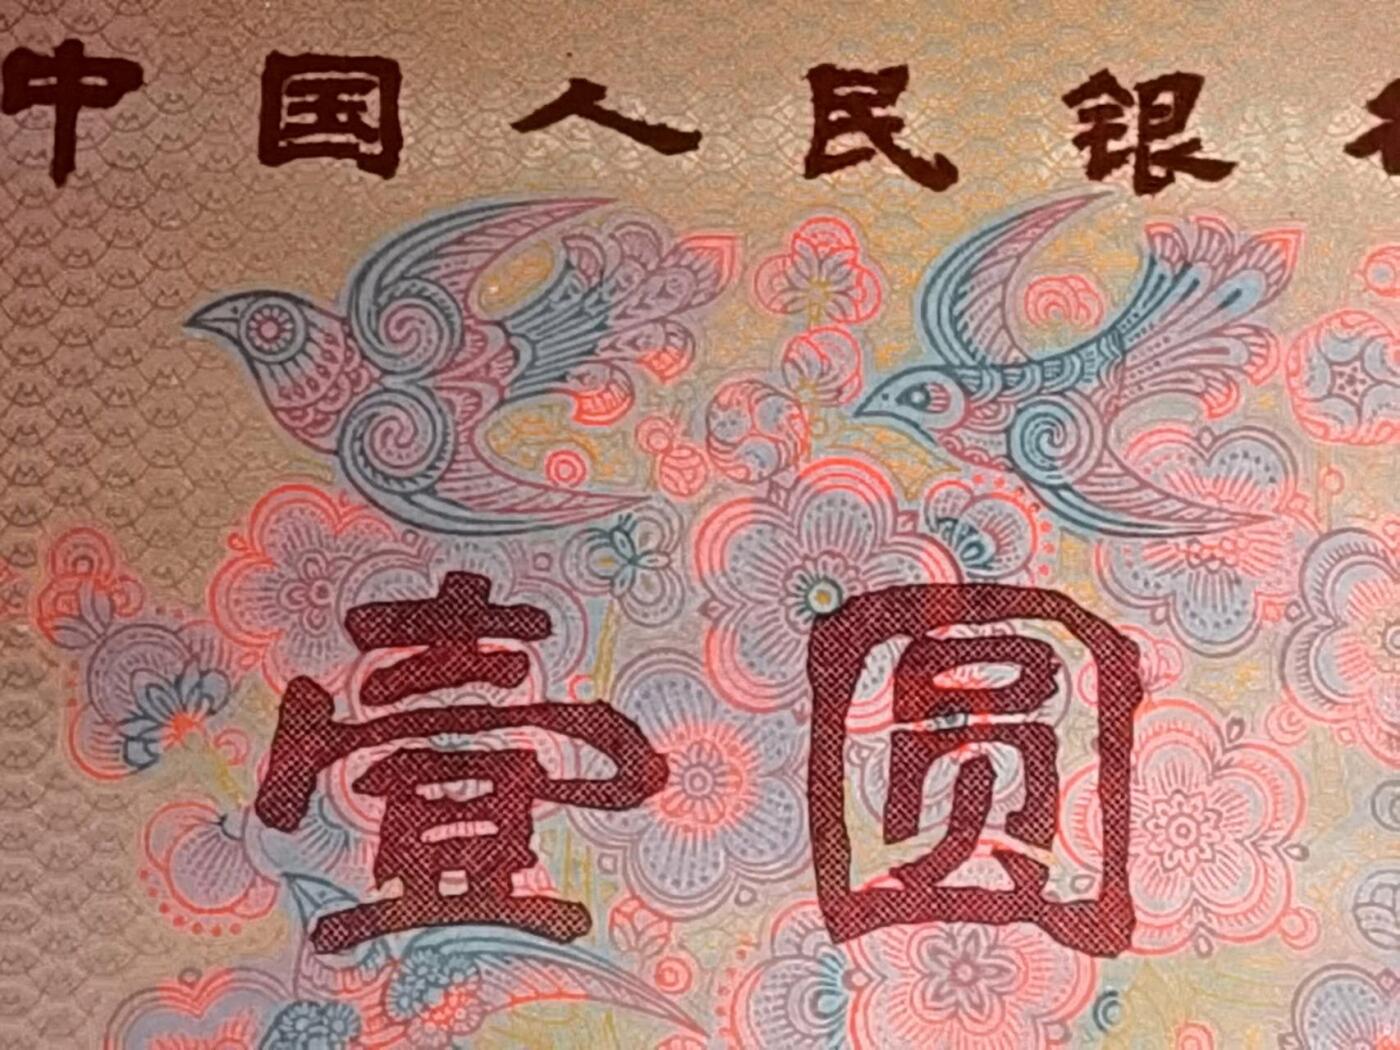 中国人民银
壹圆